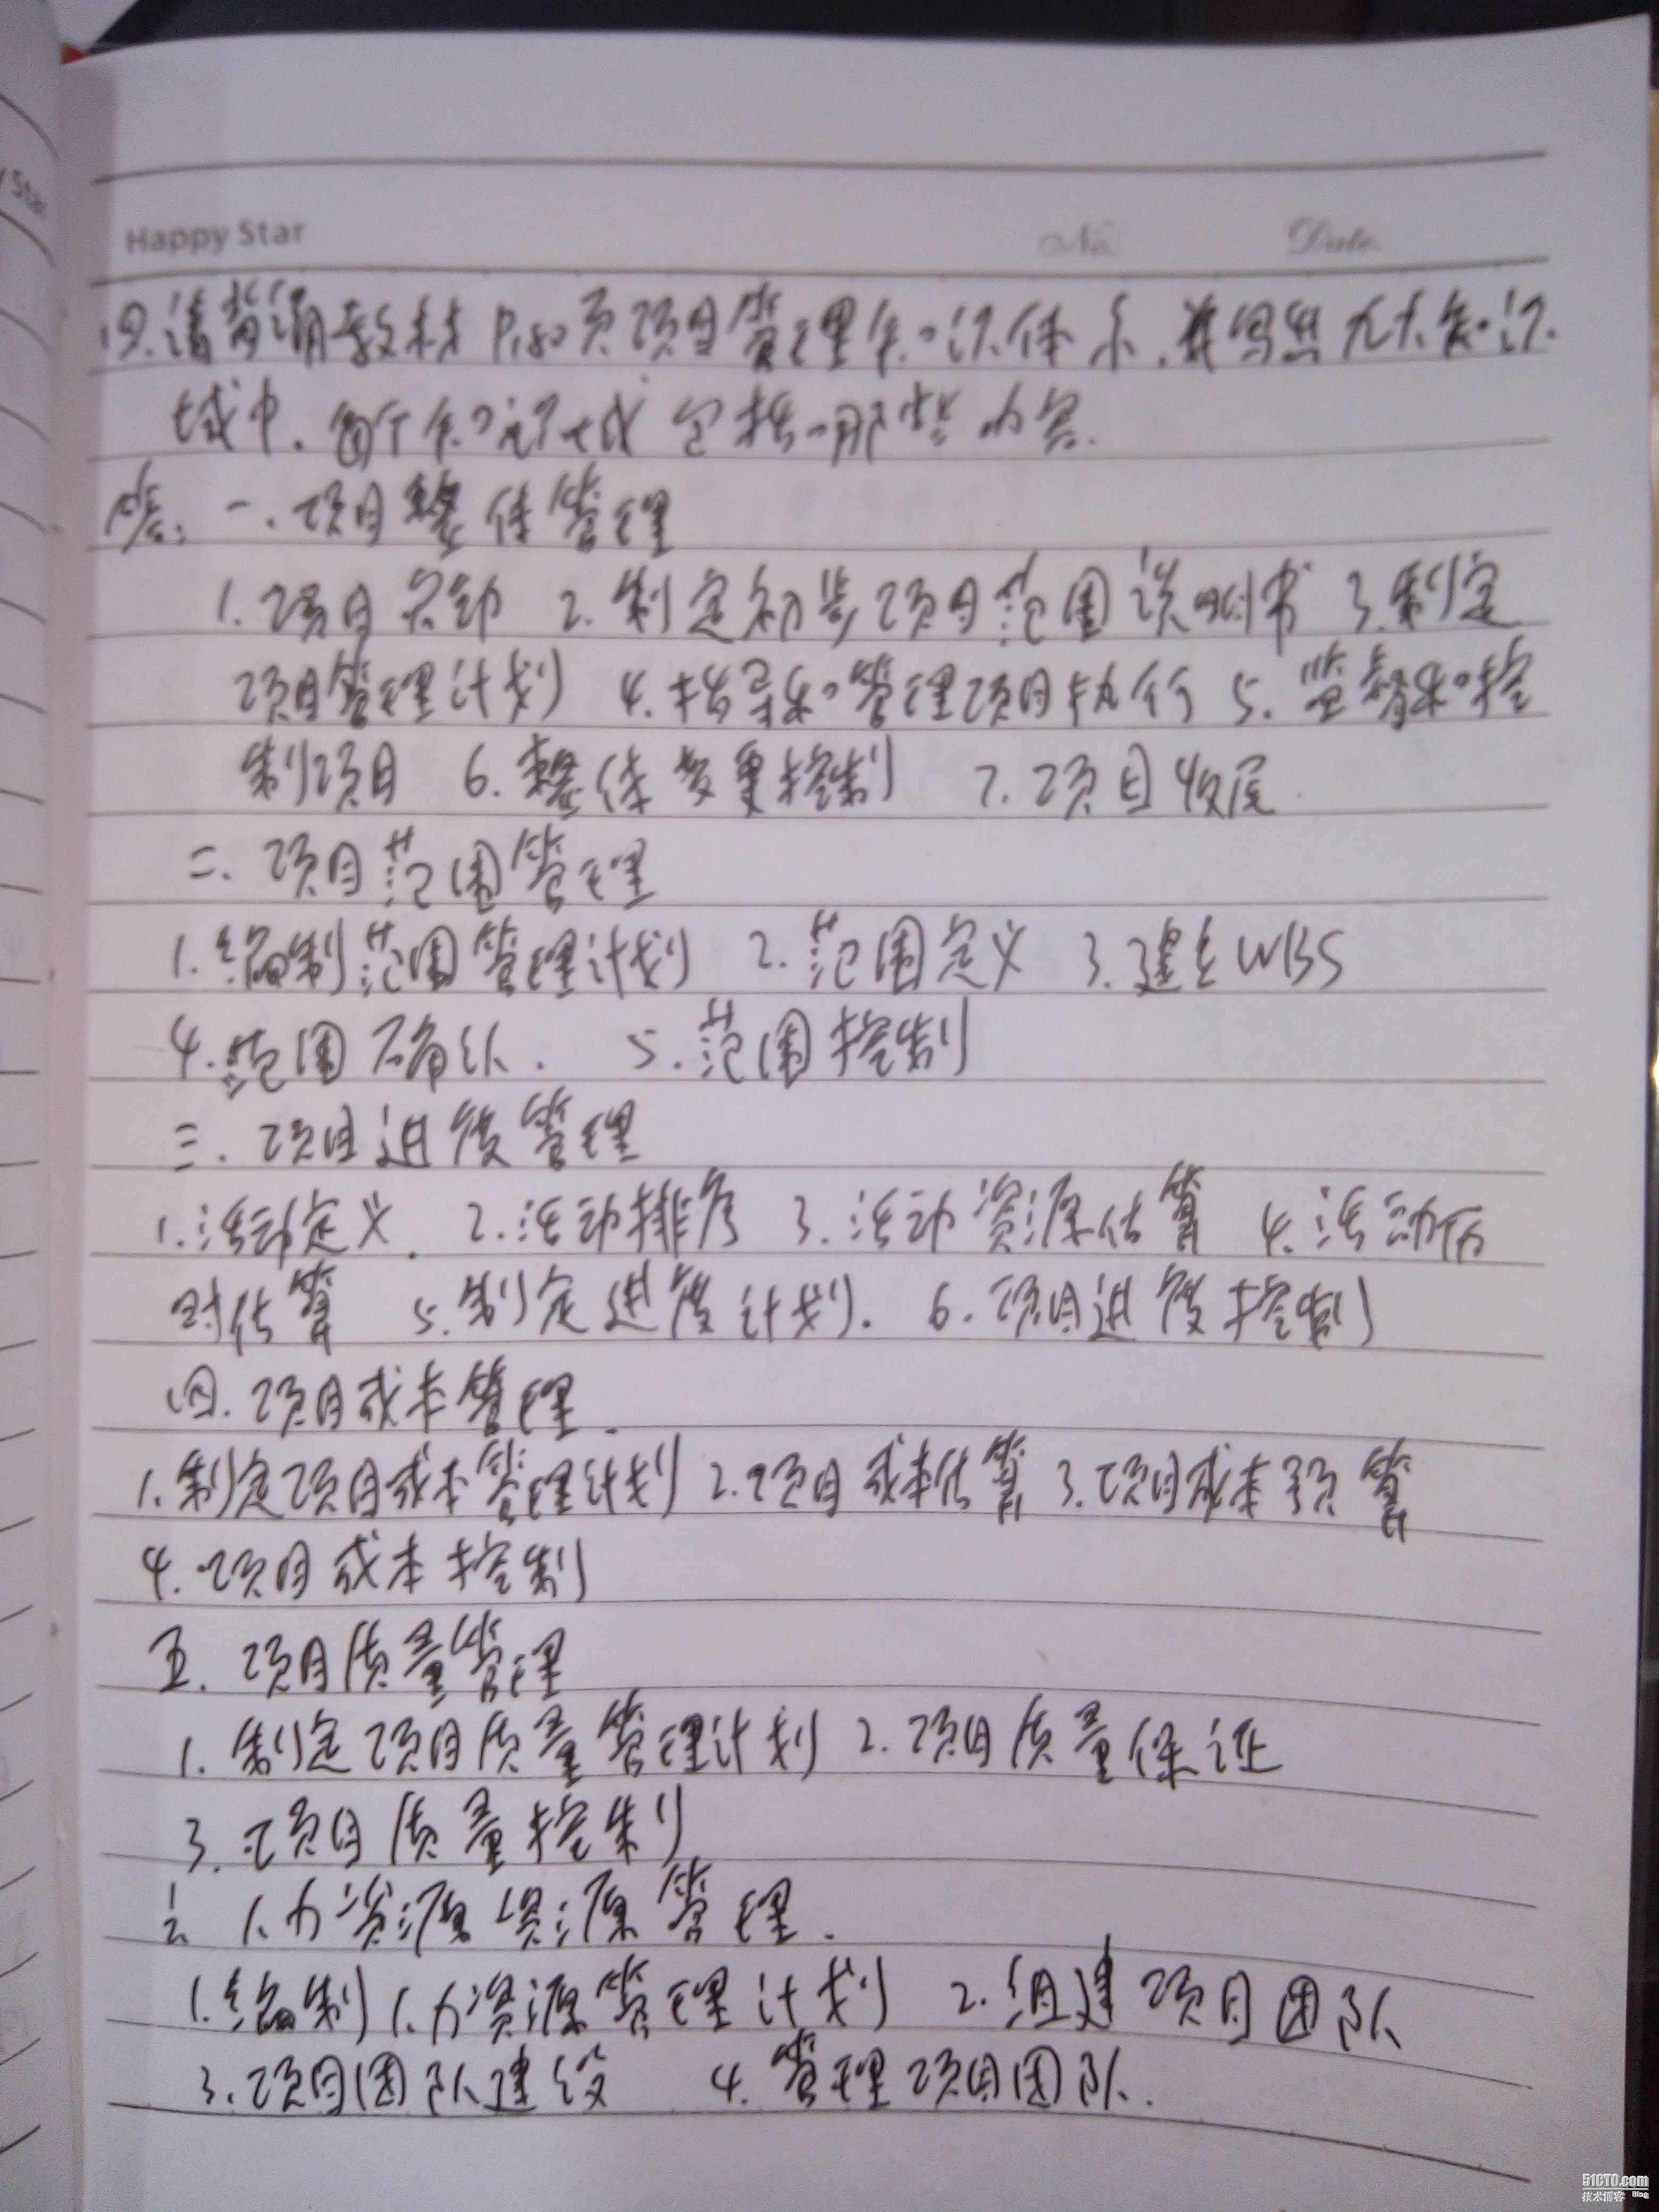 y Star
Happy Star No. Date.
四.请背诵教材P180页项目管理知识体系.并写出九大知识
域中.每个知识域包括哪些内容.
答: 一.项目整体管理
1.项目启动 2.制定初步项目范围说明书 3.制定
项目管理计划 4.指导和管理项目执行 5.监督和控
制项目 6.整体变更控制 7.项目收尾
二.项目范围管理
1.编制范围管理计划 2.范围定义 3.建立WBS
4.范围确认. 5.范围控制
三.项目进度管理
1.活动定义. 2.活动排序 3.活动资源估算 4.活动历
时估算 5.制定进度计划. 6.项目进度控制
四.项目成本管理.
1.制定项目成本管理计划 2.项目成本估算 3.项目成本预算
4.项目成本控制
五.项目质量管理
1.制定项目质量管理计划 2.项目质量保证
3.项目质量控制
六 人力资源资源管理.
1.编制人力资源管理计划 2.组建项目团队
3.项目团队建设 4.管理项目团队.
51CTO.com
技术博客 Blog